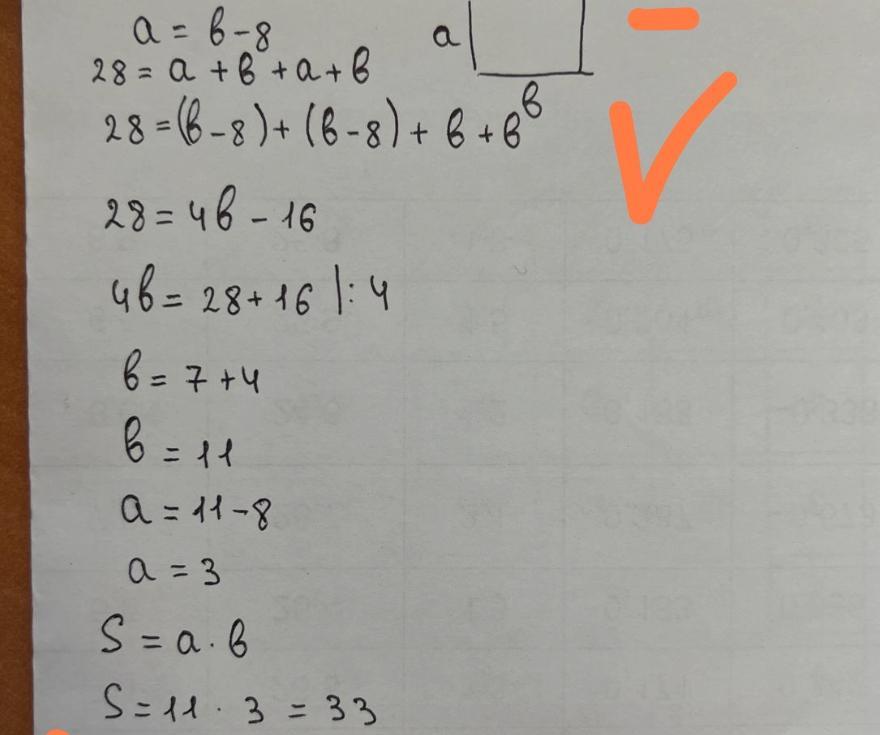 a = b - 8
a
28 = a + b + a + b
b
28 = (b - 8) + (b - 8) + b + b
28 = 4b - 16
4b = 28 + 16 |: 4
b = 7 + 4
b = 11
a = 11 - 8
a = 3
S = a · b
S = 11 · 3 = 33